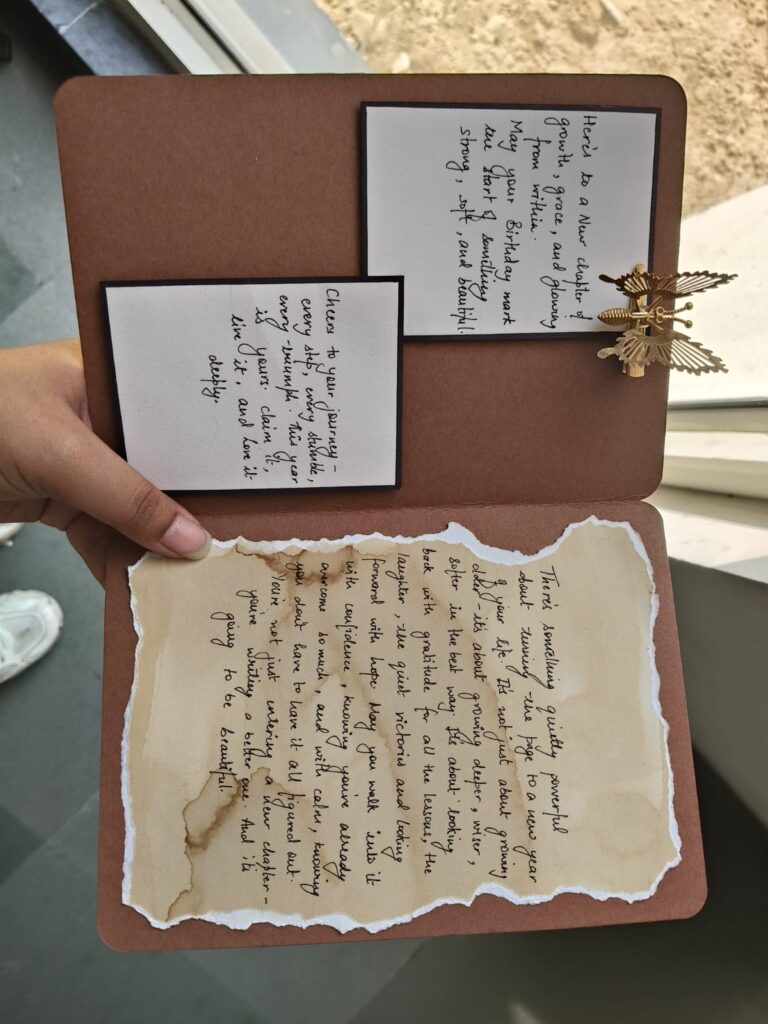 Here's to a New chapter of
growth, grace, and glowing
from within.
May your Birthday mark
the start of something
strong, soft, and beautiful.
Cheers to your journey -
every step, every stumble,
every triumph. This year
is yours. claim it,
live it, and love it
deeply.
There's something quietly powerful
about turning the page to a new year
of your life. It's not just about growing
older - it's about growing deeper, wiser,
softer in the best way. It's about looking
back with gratitude for all the lessons, the
laughter, the quiet victories and looking
forward with hope. May you walk into it
with confidence, knowing you're already
overcome so much, and with calm, knowing
you don't have to have it all figured out.
You're not just entering a new chapter -
you're writing a better one. And it's
going to be beautiful.